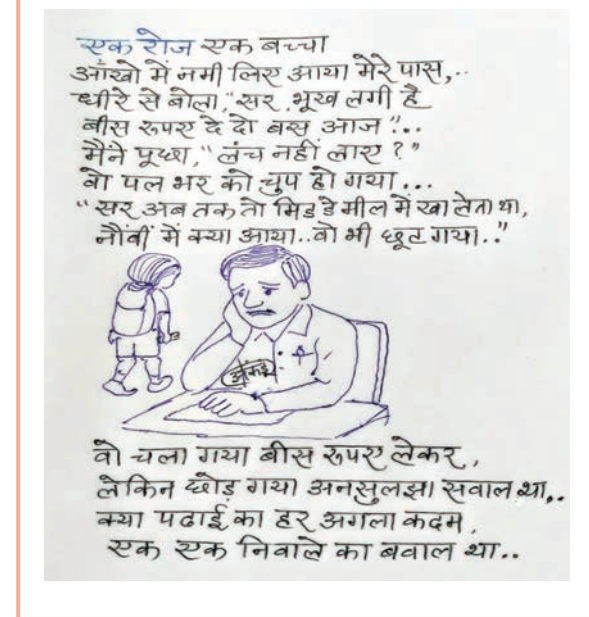 एक रोज एक बच्चा
आँखो में नमी लिए आया मेरे पास,..
धीरे से बोला, "सर, भूख लगी है
बीस रुपए दे दो बस आज"..
मैंने पूछा, "लंच नहीं लाए ?"
वो पल भर को चुप हो गया...
"सर अब तक तो मिड डे मील में खा लेता था,
नौंवीं में क्या आया..वो भी छूट गया.."
वो चला गया बीस रुपए लेकर,
लेकिन छोड़ गया अनसुलझा सवाल था,..
क्या पढाई का हर अगला कदम,
एक एक निवाले का बवाल था..